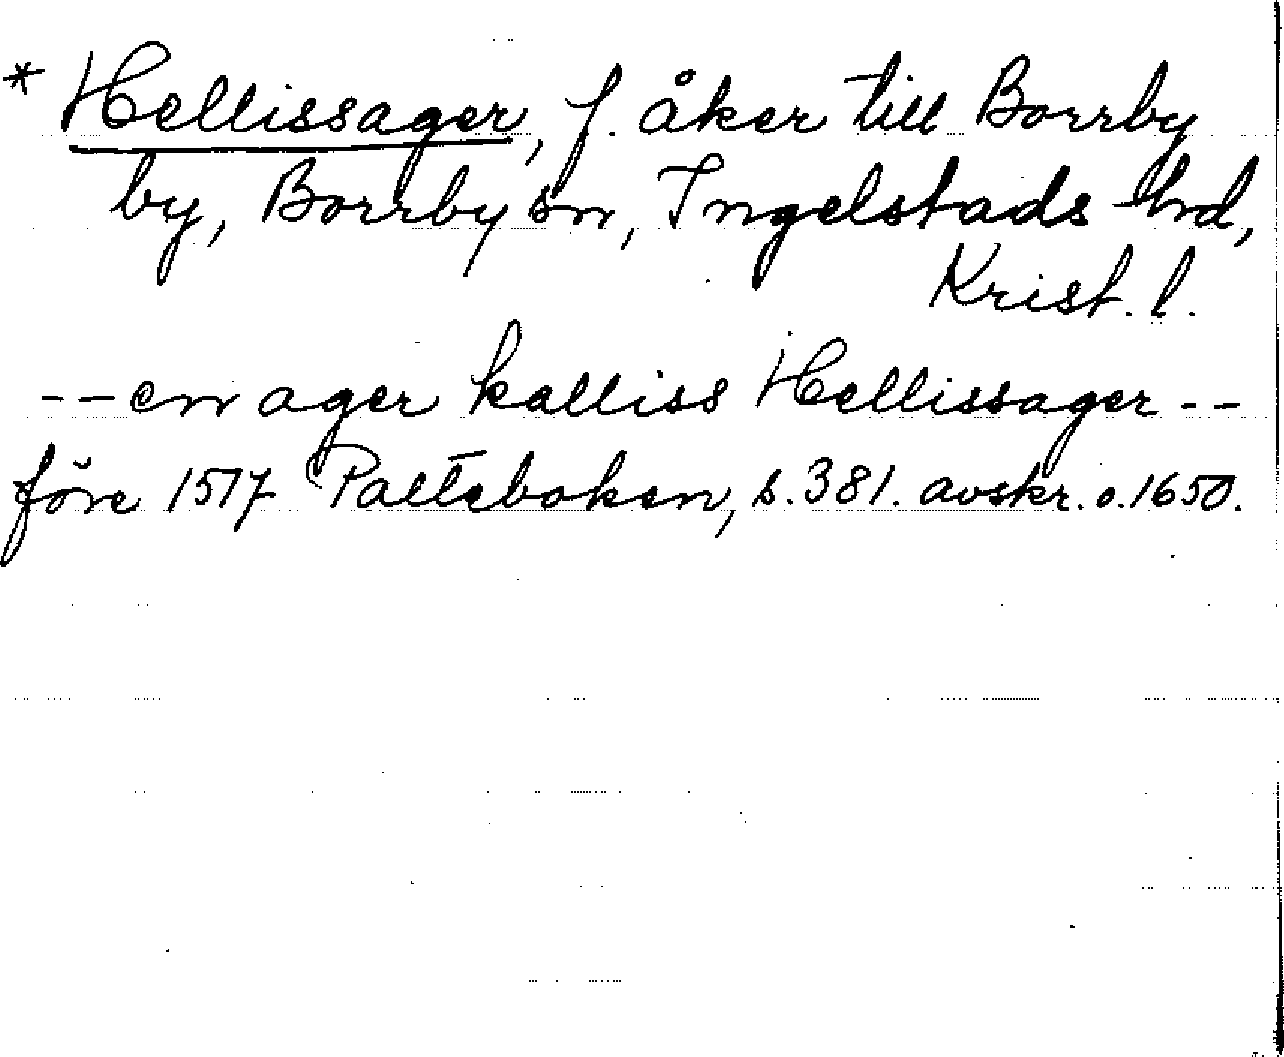 * Hellissager, f. åker till Borrby
by, Borrby sn, Ingelstads hrd,
Krist. l.
-- en ager kalliss Hellissager --
före 1517 Palteboken, s. 381. avskr. o. 1650.